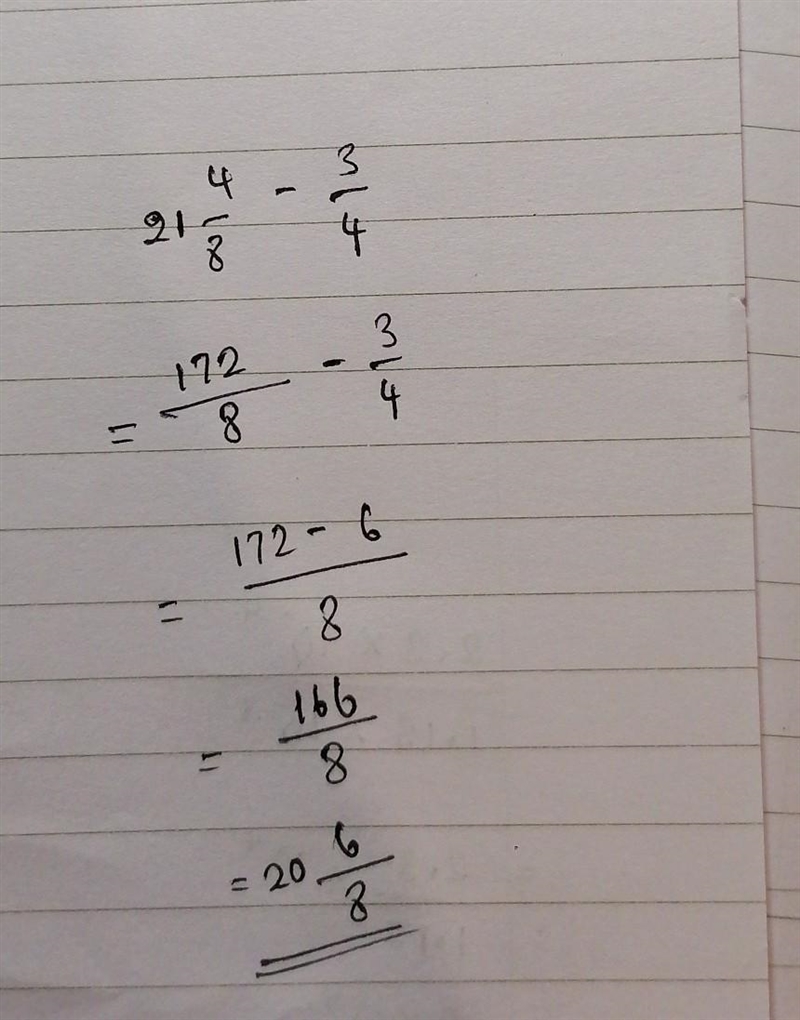 21 4/8 - 3/4
= 172/8 - 3/4
= 172 - 6/8
= 166/8
= 20 6/8